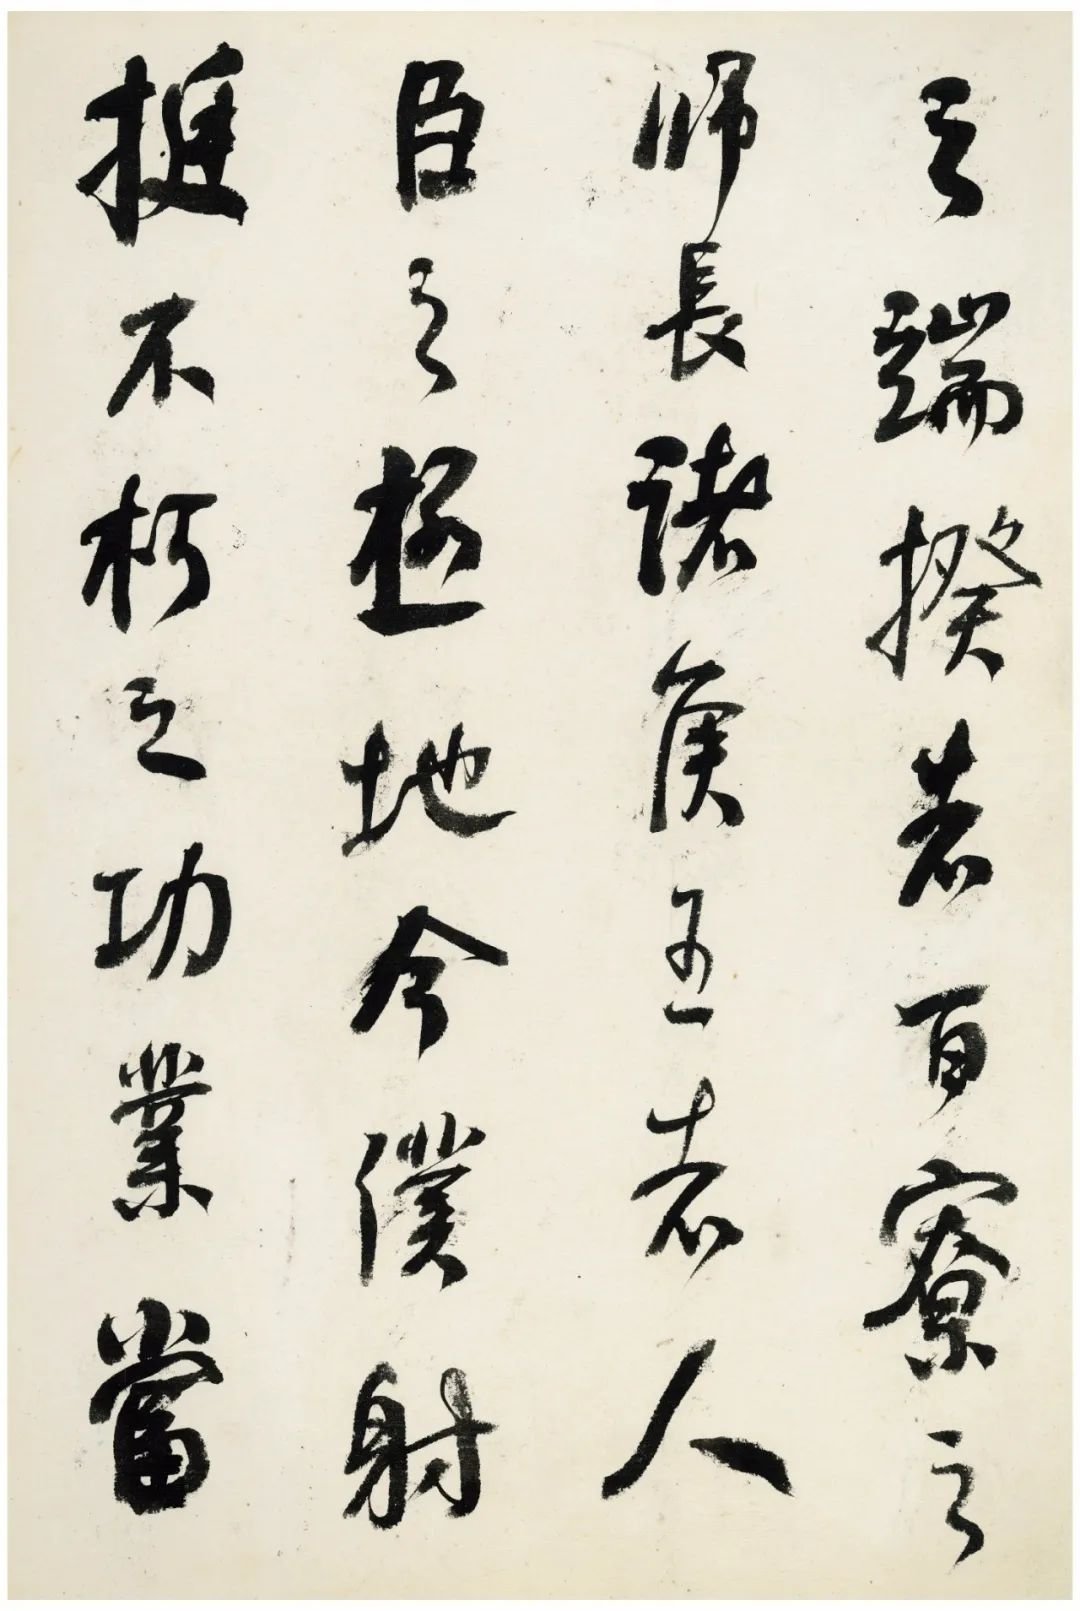 之端揆者百寮之
師長諸侯王者人
臣之極地今僕射
挺不朽之功業當